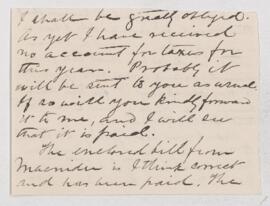 I shall be greatly obliged.
As yet I have received
no account for taxes for
this year. Probably it
will be sent to you as usual.
If so will you kindly forward
it to me, and I will see
that it is paid.
The enclosed bill from
is I think correct
and has been paid. The